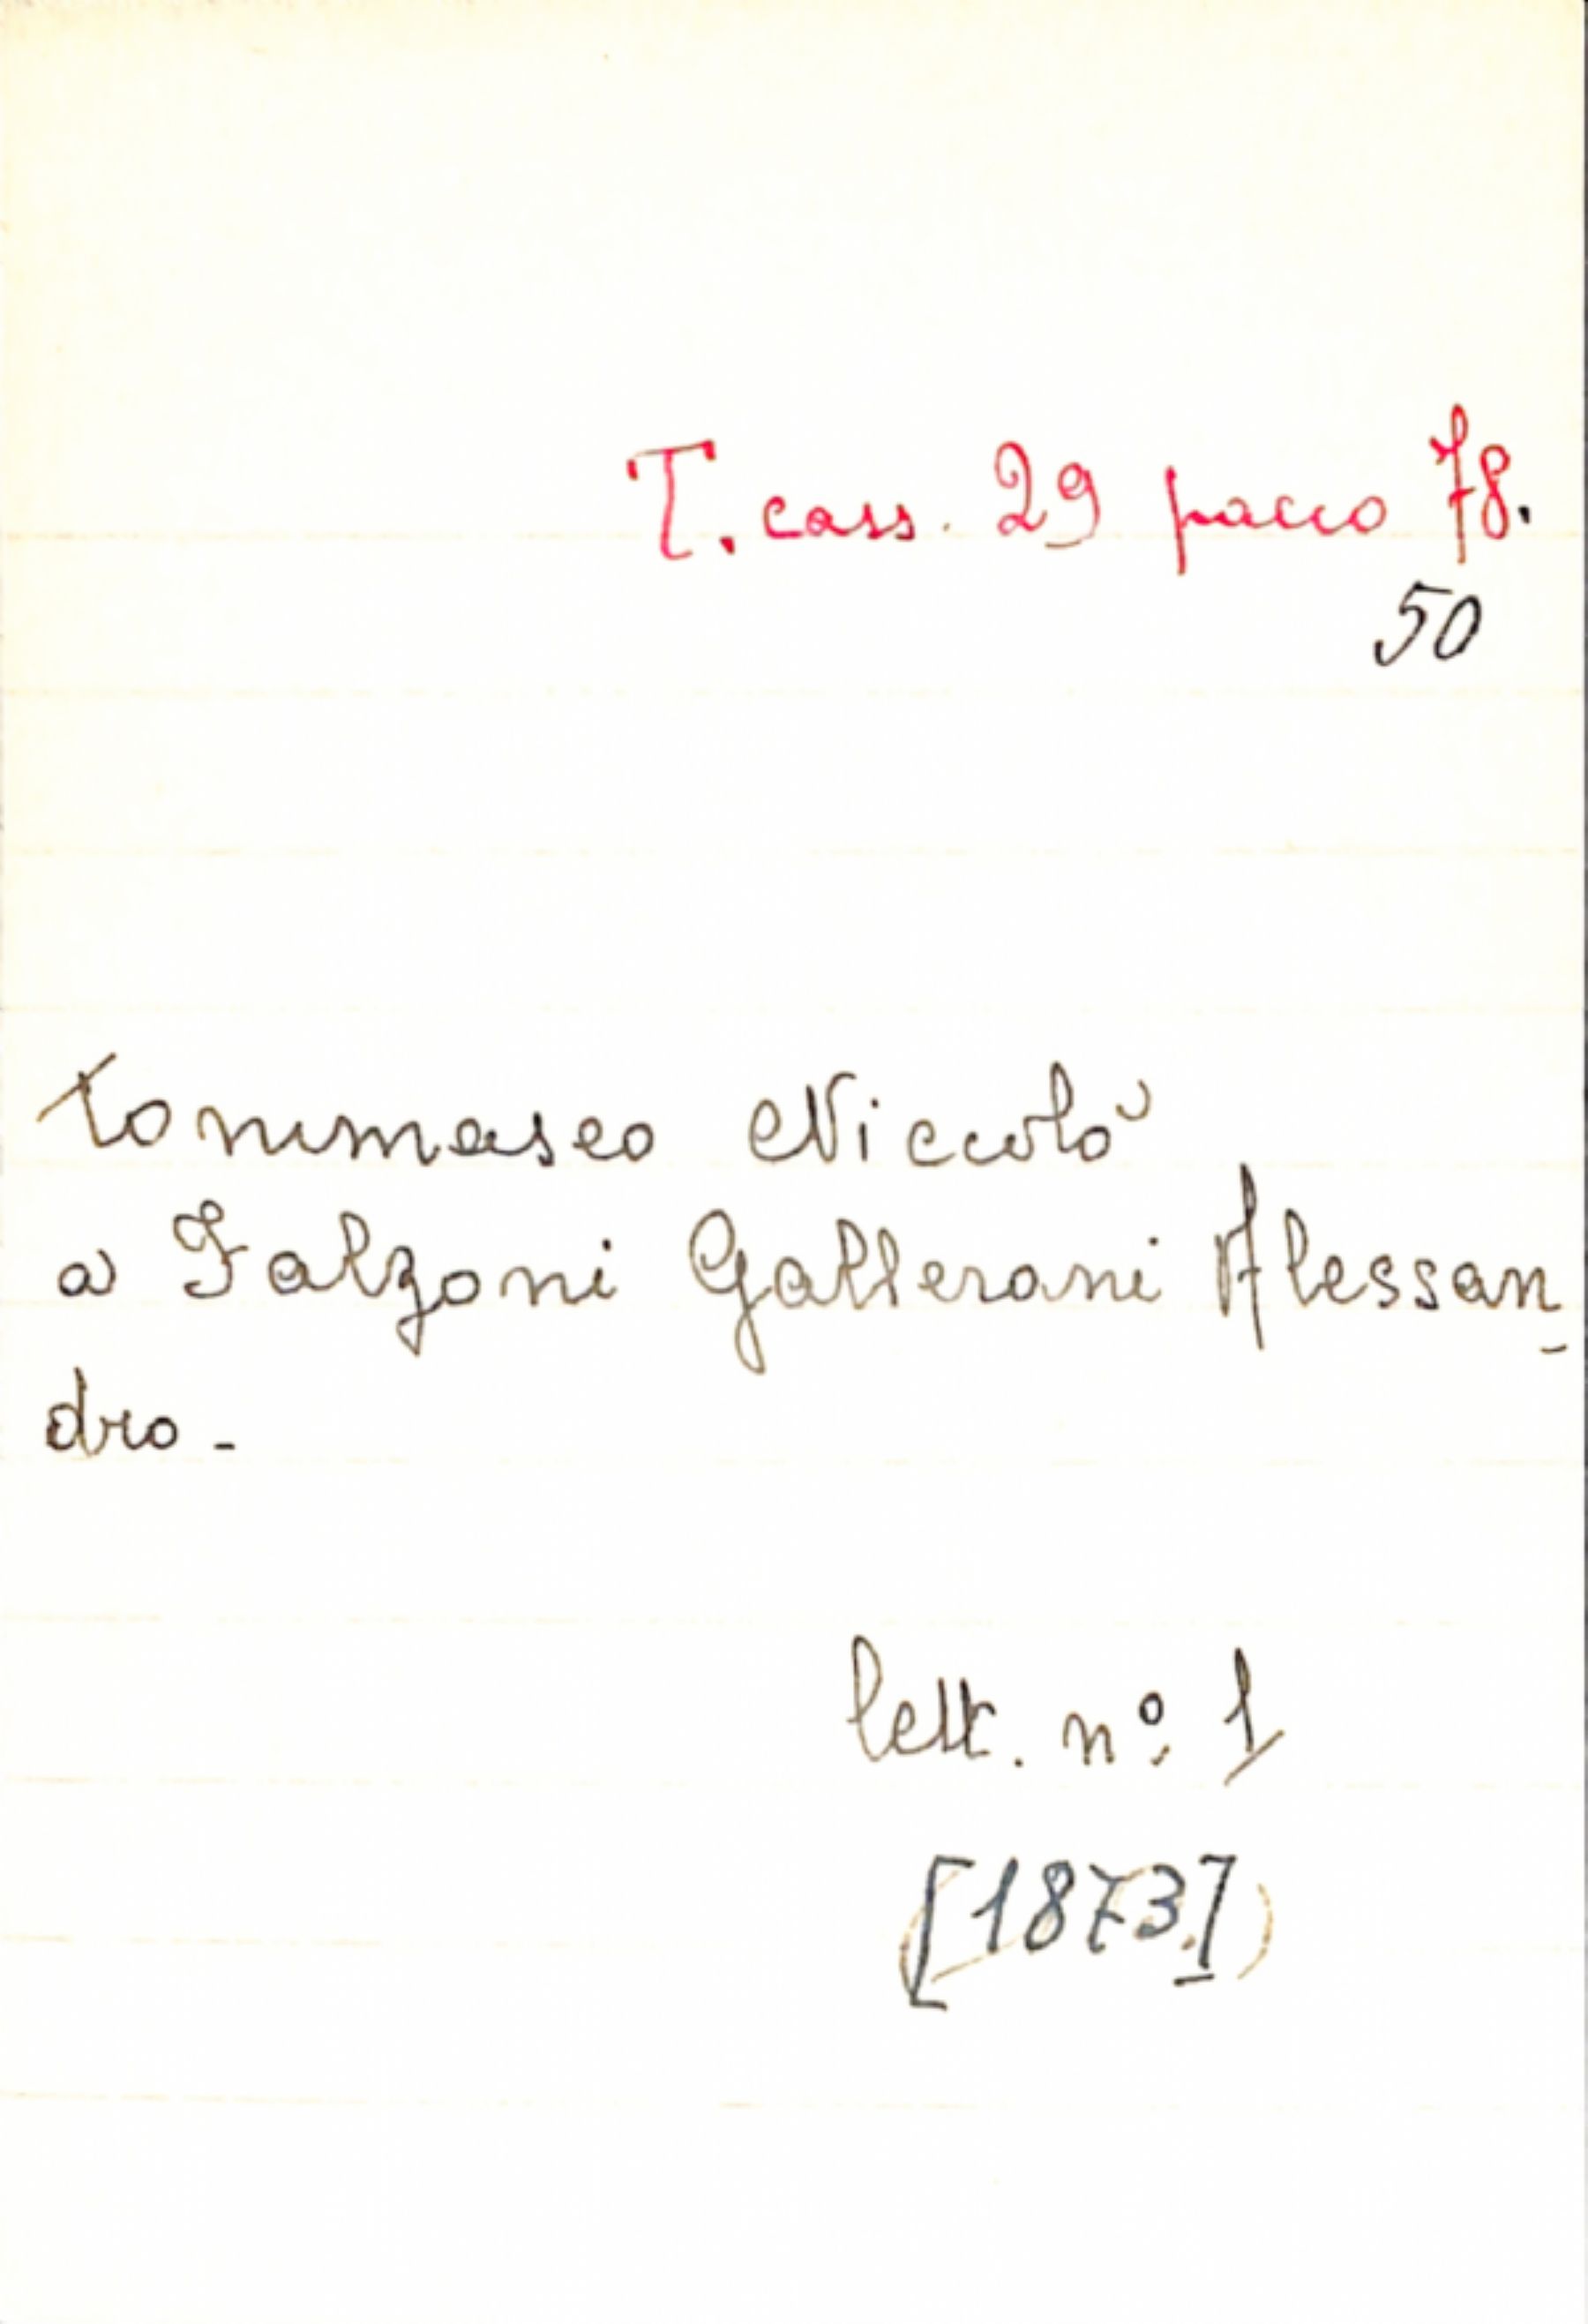 T. cass. 29 pacco 78.
50
Tommaseo Niccolò
a Falzoni Gallerani Alessan-
dro -
lett. nº 1
[1873.]